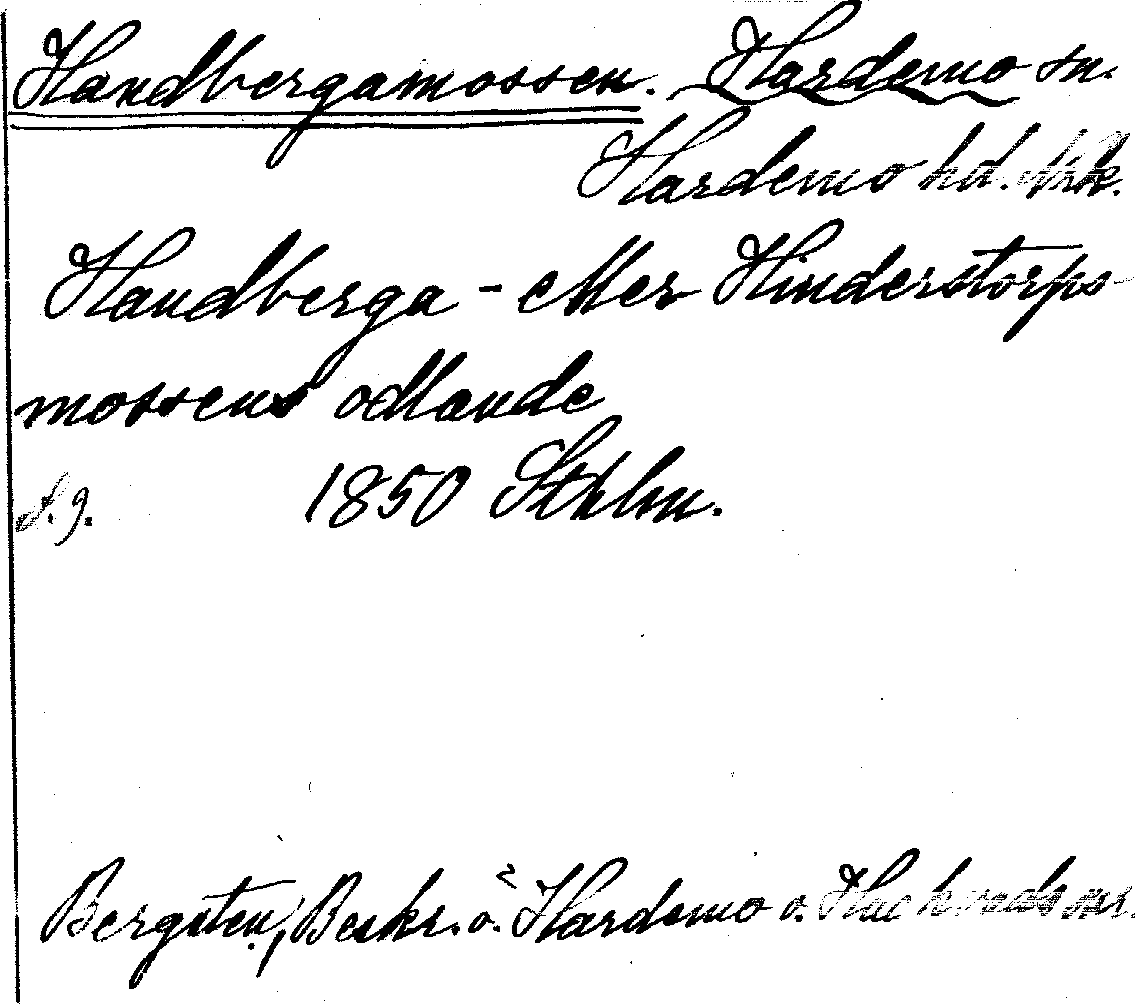 Handbergamossen. Hardemo sn.
Hardemo hd. Nrk.
Handberga- eller Hinderstorps
mossens odlande
s.9. 1850 Sthlm.
Bergsten, Beskr. ö. Hardemo o. Hackvads snr.